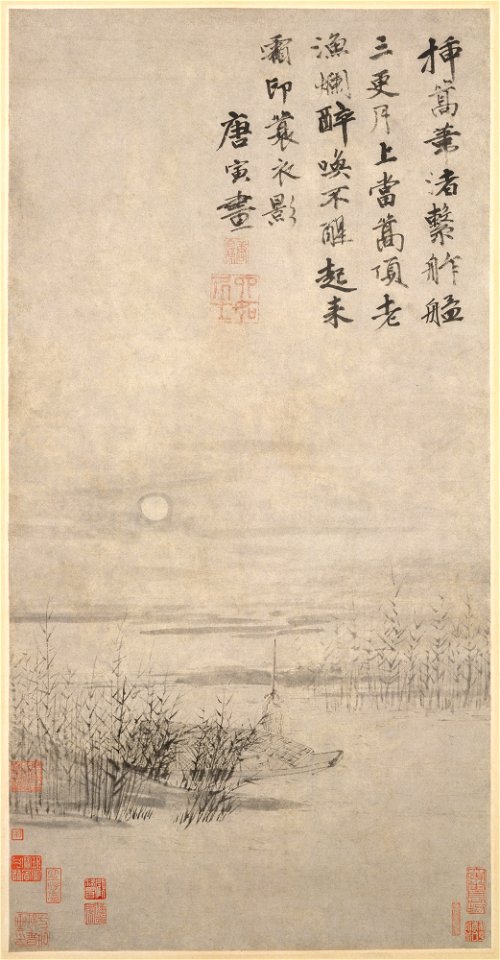 插篙葦渚繫舴艋
三更月上當篙頂老
漁爛醉喚不醒起来
霜印蓑衣影
唐寅畫
六如居士